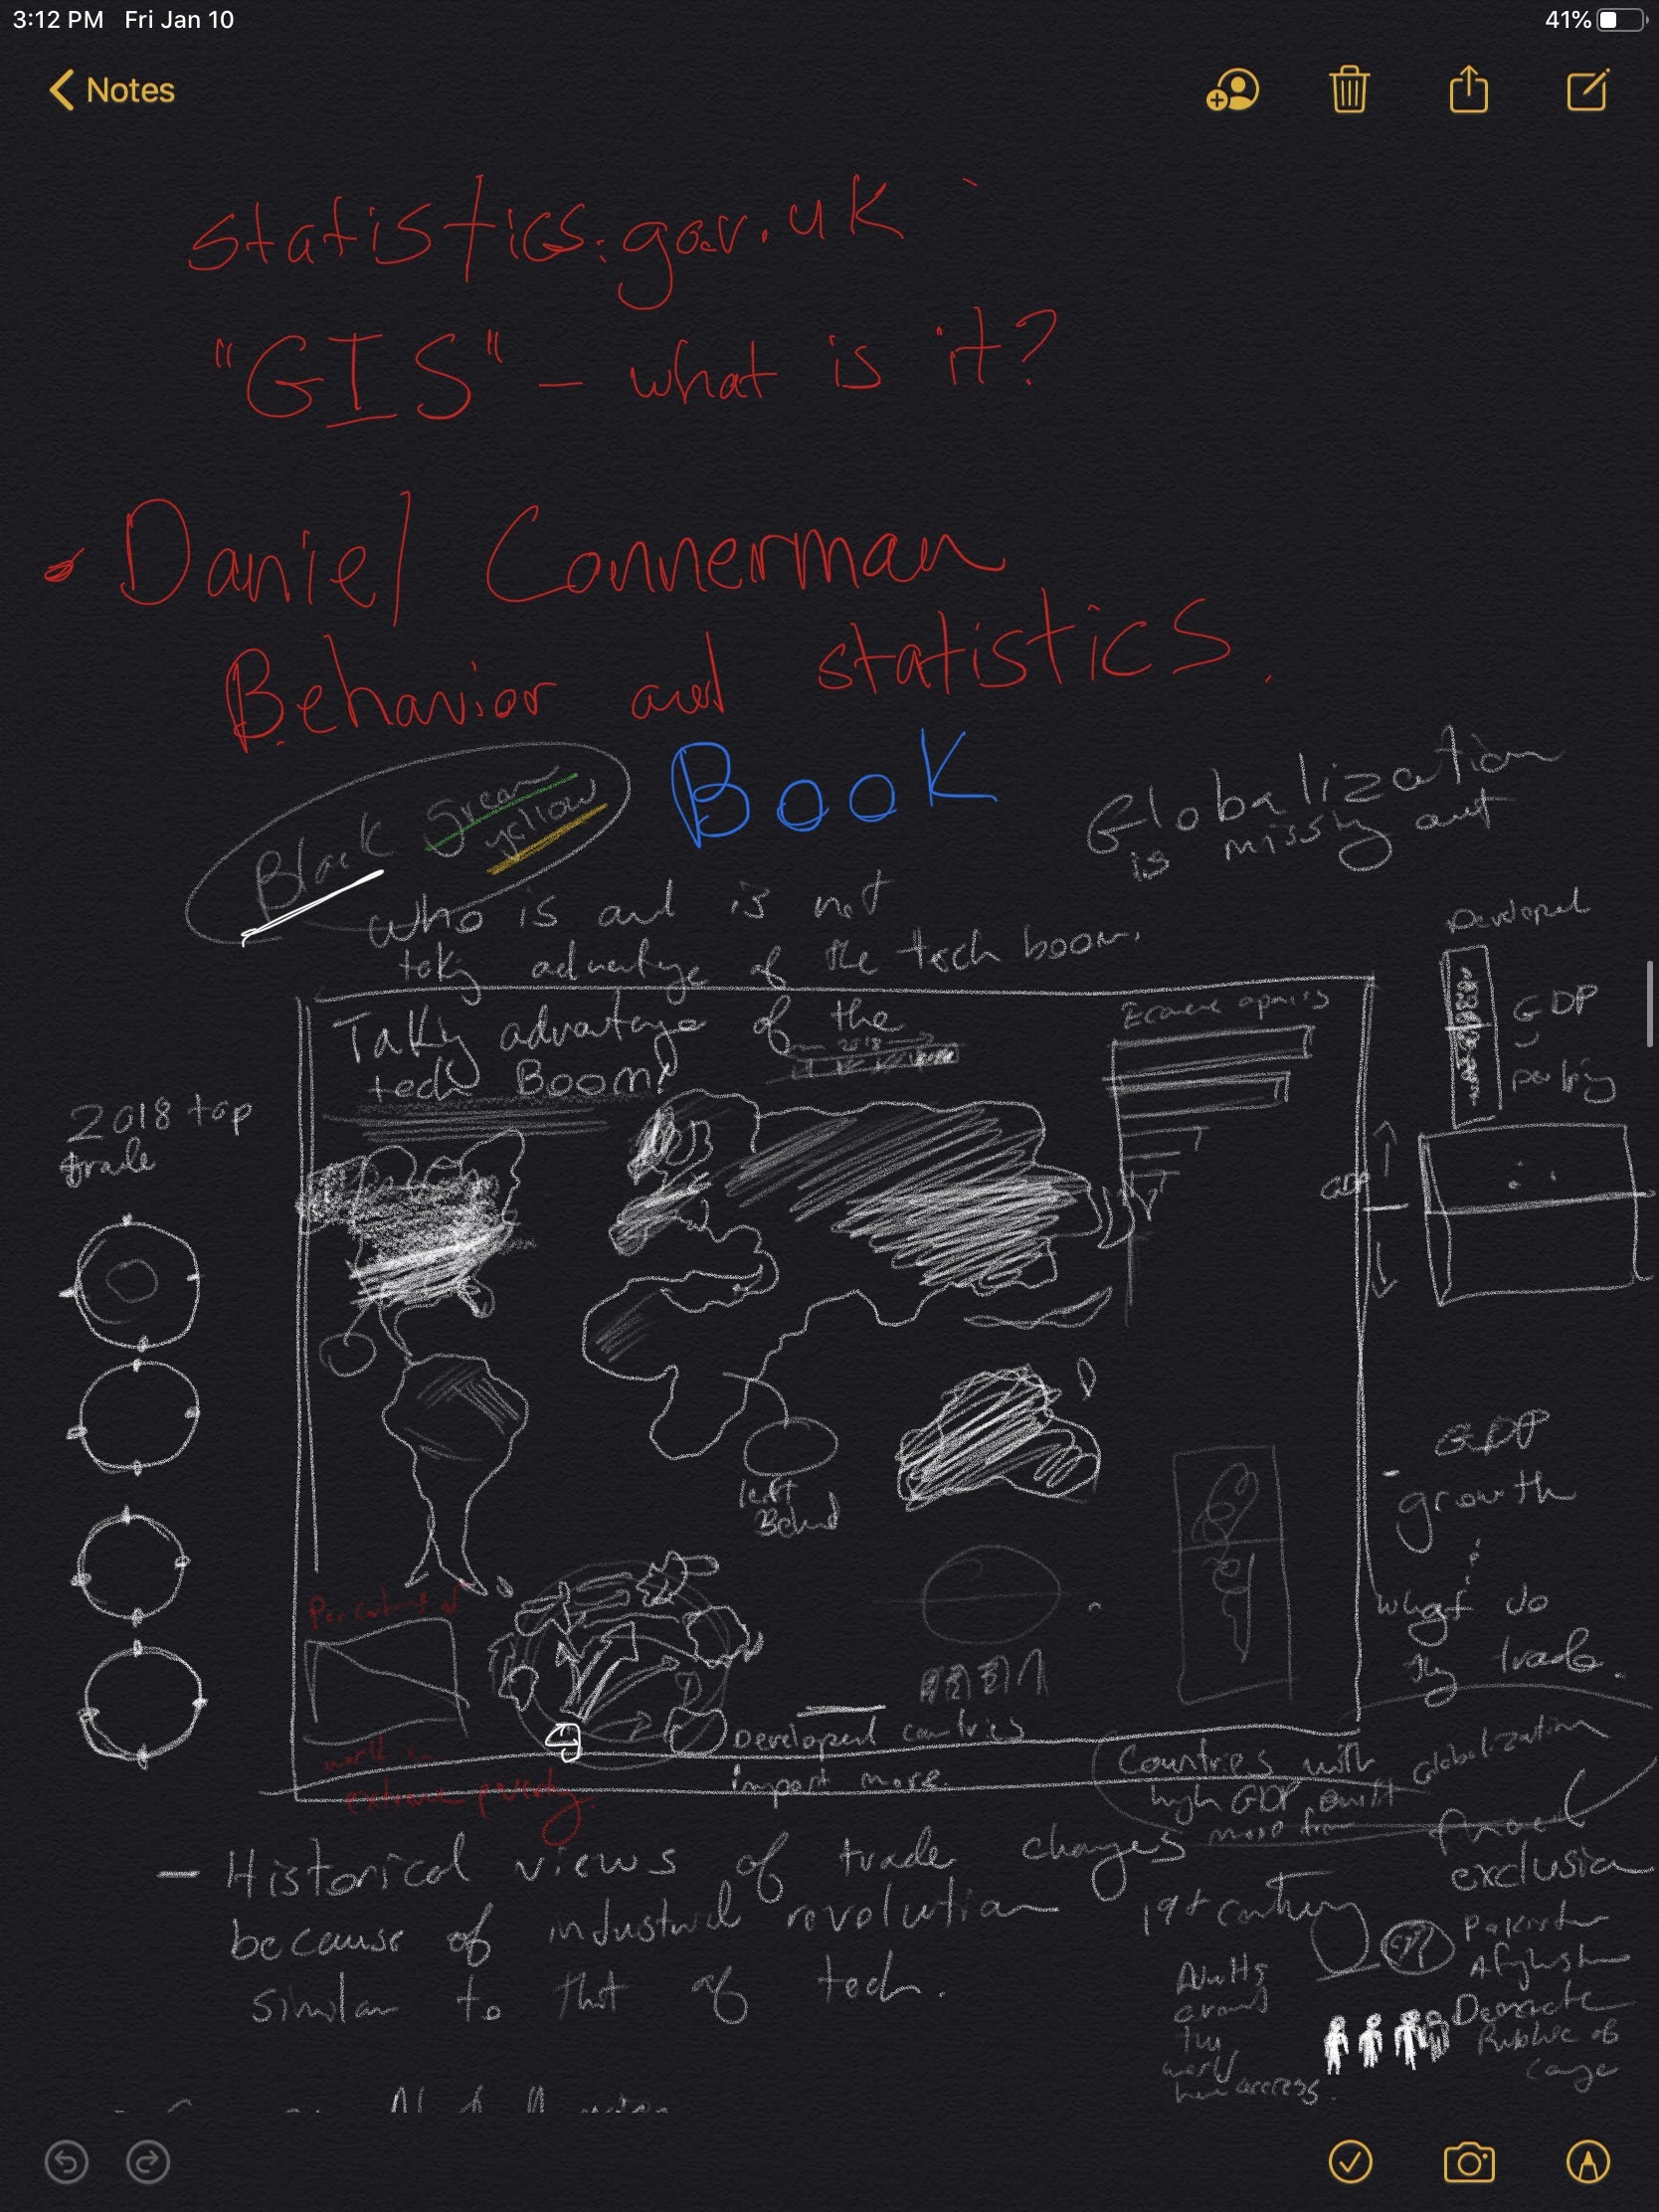 3:12 PM Fri Jan 10
41%
Notes
statistics.gov.uk
"GIS" - what is it?
Daniel Connerman
Behavior and statistics.
Black Green
yellow
Book
Globalization
is missing out
Who is and is not
takig advantage of the tech boom.
Developed
Taking advantage of the
tech Boom?
2018
GDP
2018 top
trade
GDP
left
Behind
GDP
growth
what do
they trade.
Percentage of
world in
extreme poverty.
Developed countries
import more.
Countries with
high GDP, emit
more from
Globalization
- Historical views of trade changes
because of industrial revolution
similar to that of tech.
exclusion
19th century
Adults
around
the
world
have access.
Pakistan
Afghistan
Democratic
Rublic of
Congo